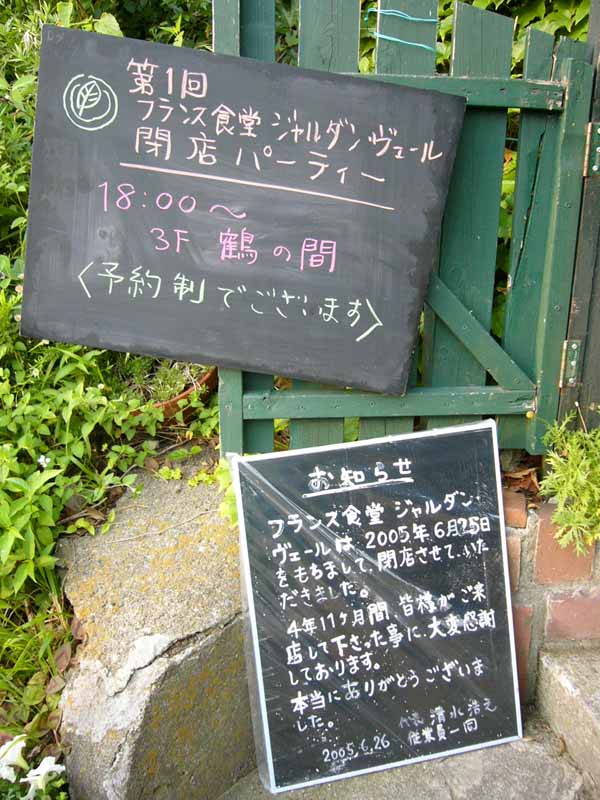 第1回
フランス食堂 ジャルダン・ヴェール
閉店 パーティー
18:00～
3F 鶴の間
〈予約制でございます〉
お知らせ
フランス食堂 ジャルダン・
ヴェールは、2005年6月25日
をもちまして、閉店させていた
だきました。
4年11ヶ月間、皆様がご来
店して下さった事に、大変感謝
しております。
本当にありがとうございま
した。
代表 清水浩元
従業員一同
2005.6.26